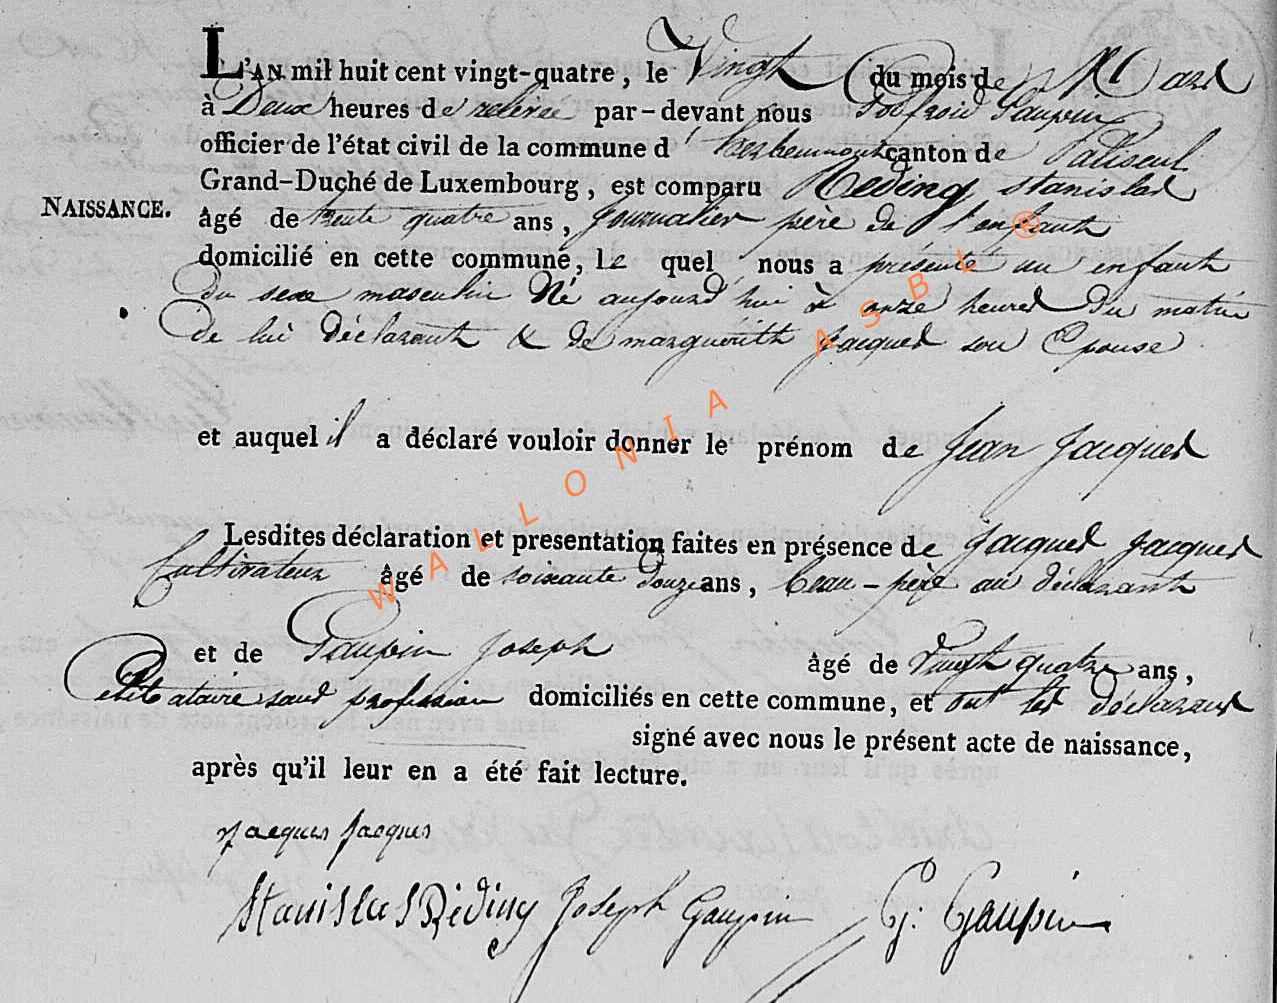 L'AN mil huit cent vingt-quatre, le Vingt du mois de Mars
à Deux heures de relevée par-devant nous Godfroid Gaupin
officier de l'état civil de la commune d'herbeumont canton de Paliseul
Grand-Duché de Luxembourg, est comparu Reding Stanislas
NAISSANCE.
âgé de trente quatre ans, Journalier père de l'enfant
domicilié en cette commune, le quel nous a présenté un enfant
du sexe masculin Né aujourd'hui à onze heures Du matin
de lui déclarant & de marguerith Jacques son Epouse
et auquel il a déclaré vouloir donner le prénom de Jean Jacques
Lesdites déclaration et presentation faites en présence de Jacques Jacques
Cultivateur âgé de soixante douze ans, beau-père au déclarant
et de Gaupin Joseph âgé de Vingt quatre ans,
Celibataire sans profession domiciliés en cette commune, et ont les déclarans
signé avec nous le présent acte de naissance,
après qu'il leur en a été fait lecture.
Jacques Jacques
Stanislas Rèding Joseph Gaupin G. Gaupin
WALLONIA ASBL ®